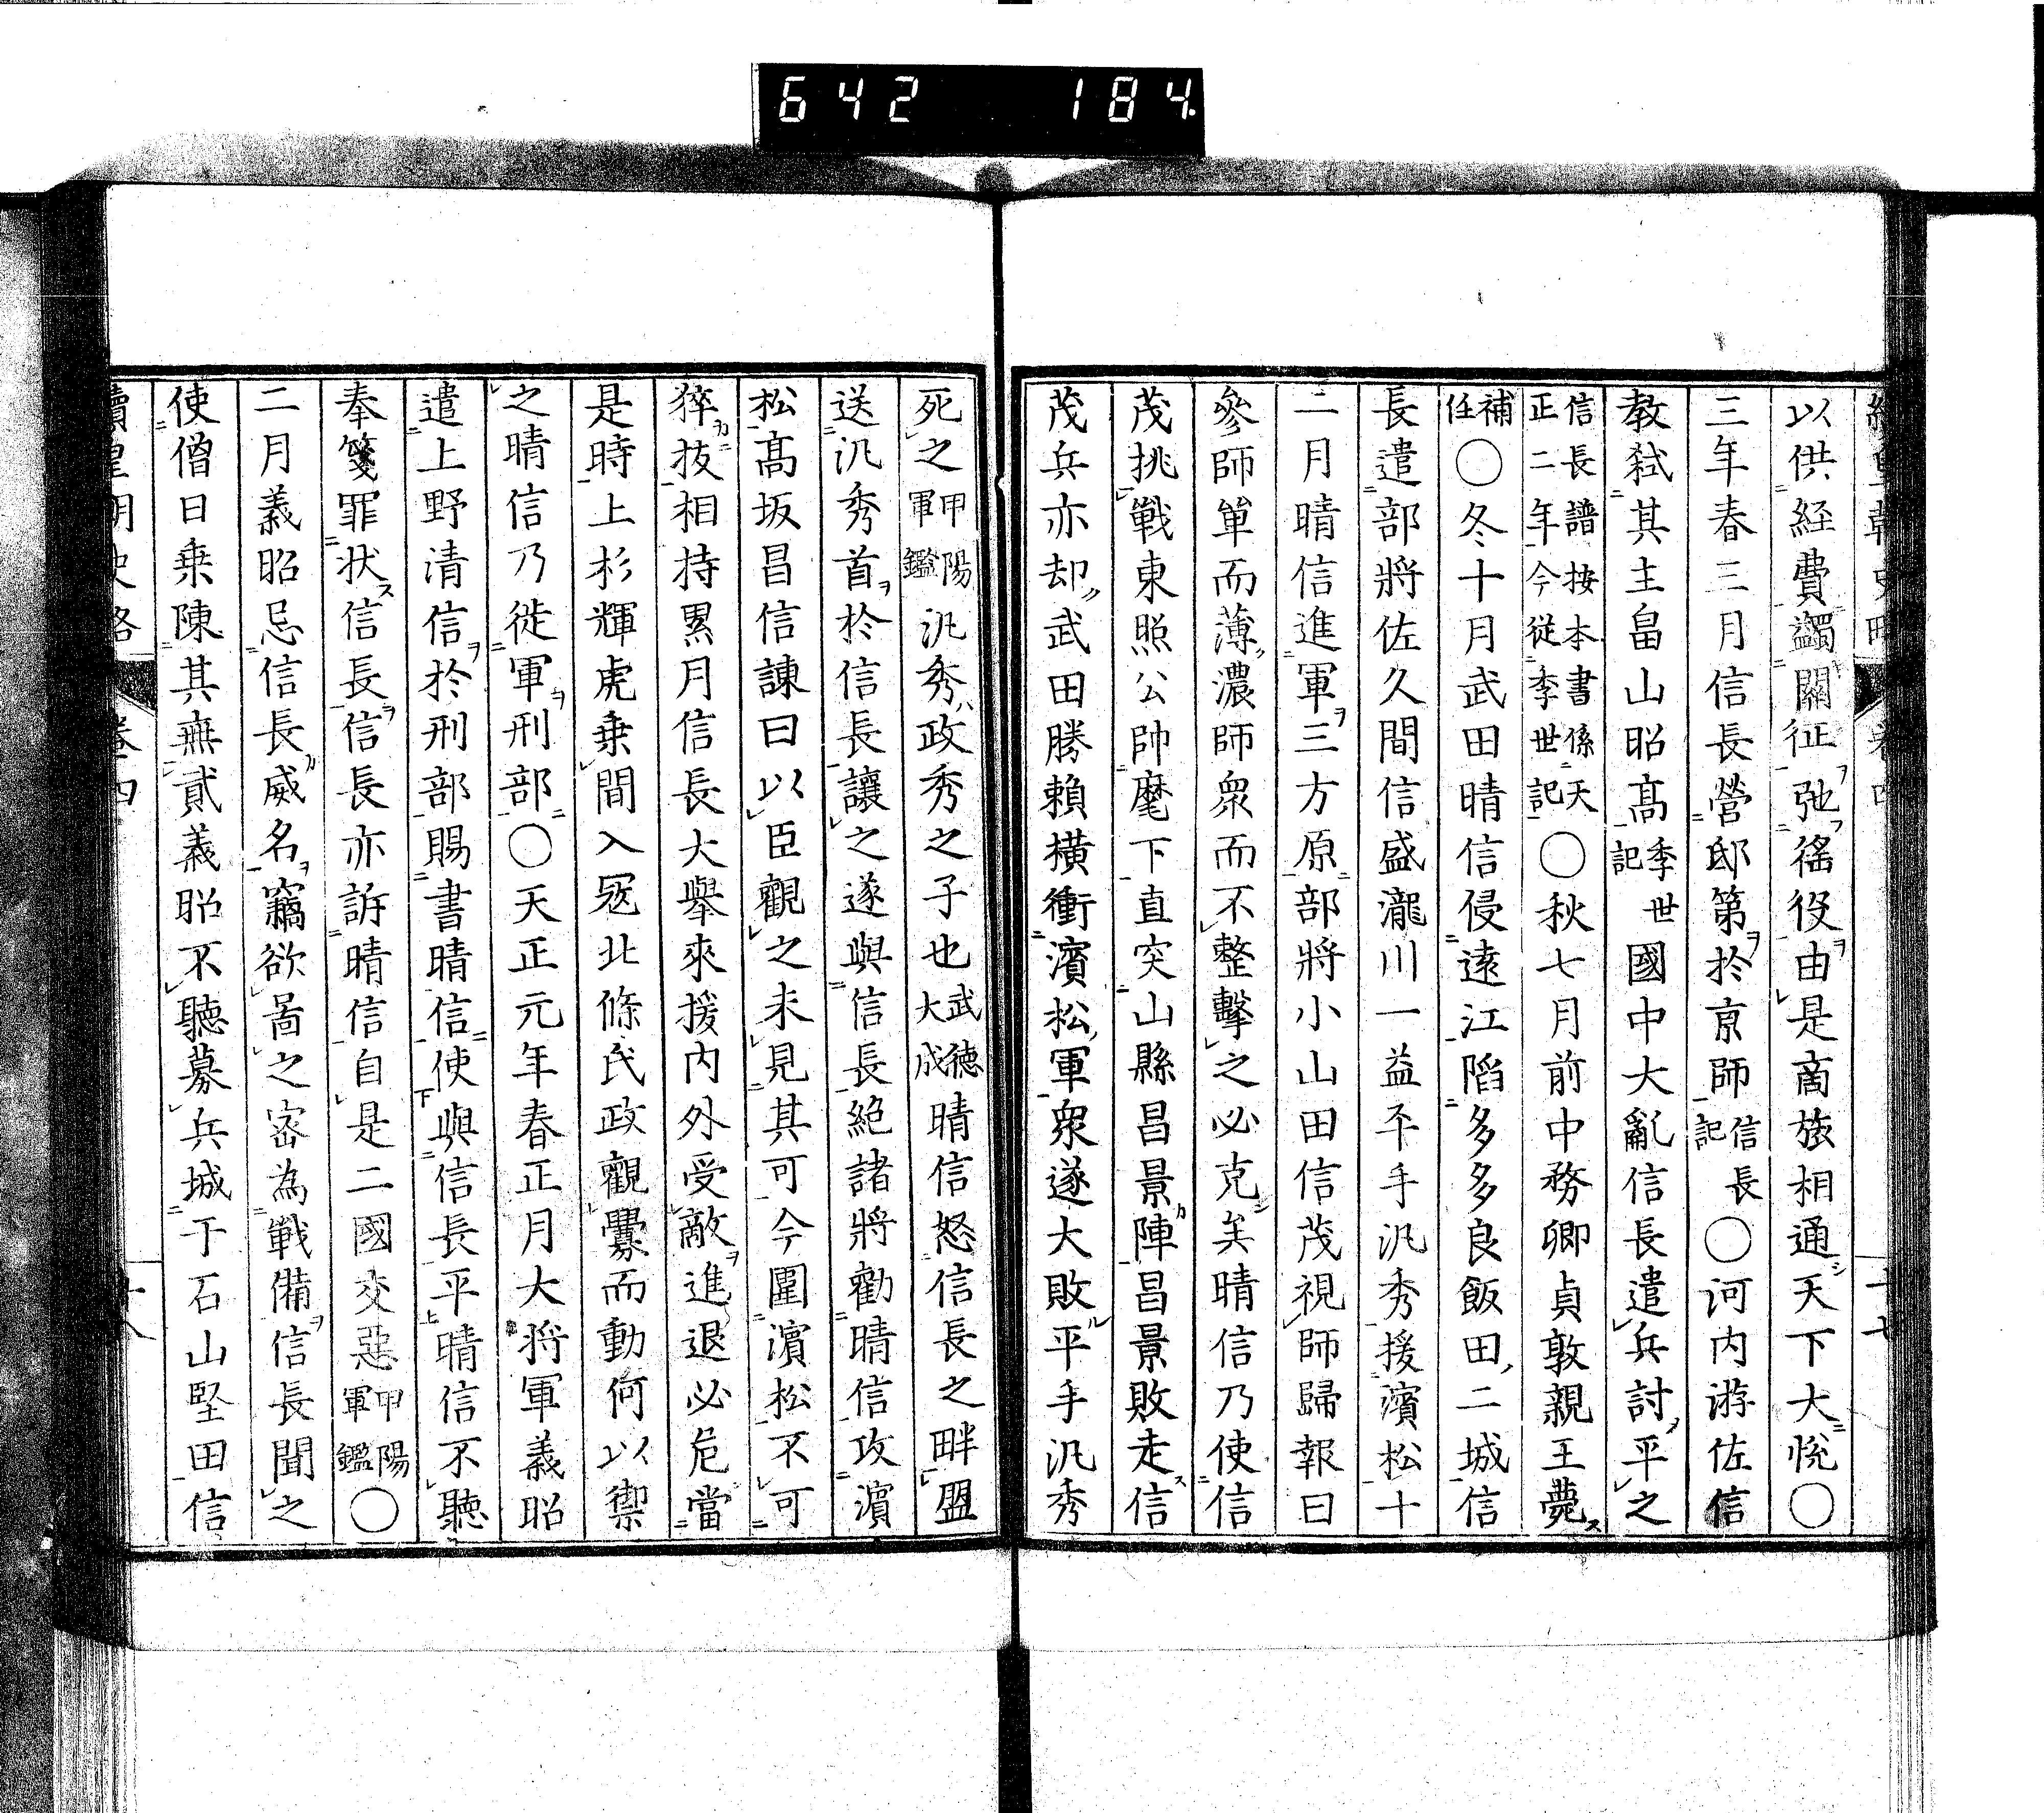 642 184.
以供経費蠲關征弛徭役由是商旅相通天下大悅〇
三年春三月信長營邸第於京師信長記〇河内游佐信
教弑其主畠山昭髙季世記國中大亂信長遣兵討平之
信長譜按本書係天正二年今從季世記〇秋七月前中務卿貞敦親王薨
補任〇冬十月武田晴信侵遠江陷多多良飯田二城信
長遣部將佐久間信盛瀧川一益平手汎秀援濱松十
二月晴信進軍三方原部將小山田信茂視師歸報曰
參師單而薄濃師衆而不整擊之必克矣晴信乃使信
茂挑戰東照公帥麾下直突山縣昌景陣昌景敗走信
茂兵亦却武田勝賴橫衝濱松軍衆遂大敗平手汎秀
死之甲陽軍鑑汎秀政秀之子也武德大成晴信怒信長之畔盟
送汎秀首於信長讓之遂與信長絕諸將勸晴信攻濵
松髙坂昌信諫曰以臣觀之未見其可今圍濵松不可
猝拔相持累月信長大舉來援内外受敵進退必危當
是時上杉輝虎乗間入冦北條氏政觀釁而動何以禦
之晴信乃徙軍刑部〇天正元年春正月大將軍義昭
遣上野清信於刑部賜書晴信使與信長平晴信不聽
奉箋罪状信長信長亦訴晴信自是二國交惡甲陽軍鑑〇
二月義昭忌信長威名竊欲啚之密為戰備信長聞之
使僧日乗陳其無貳義昭不聽募兵城于石山堅田信